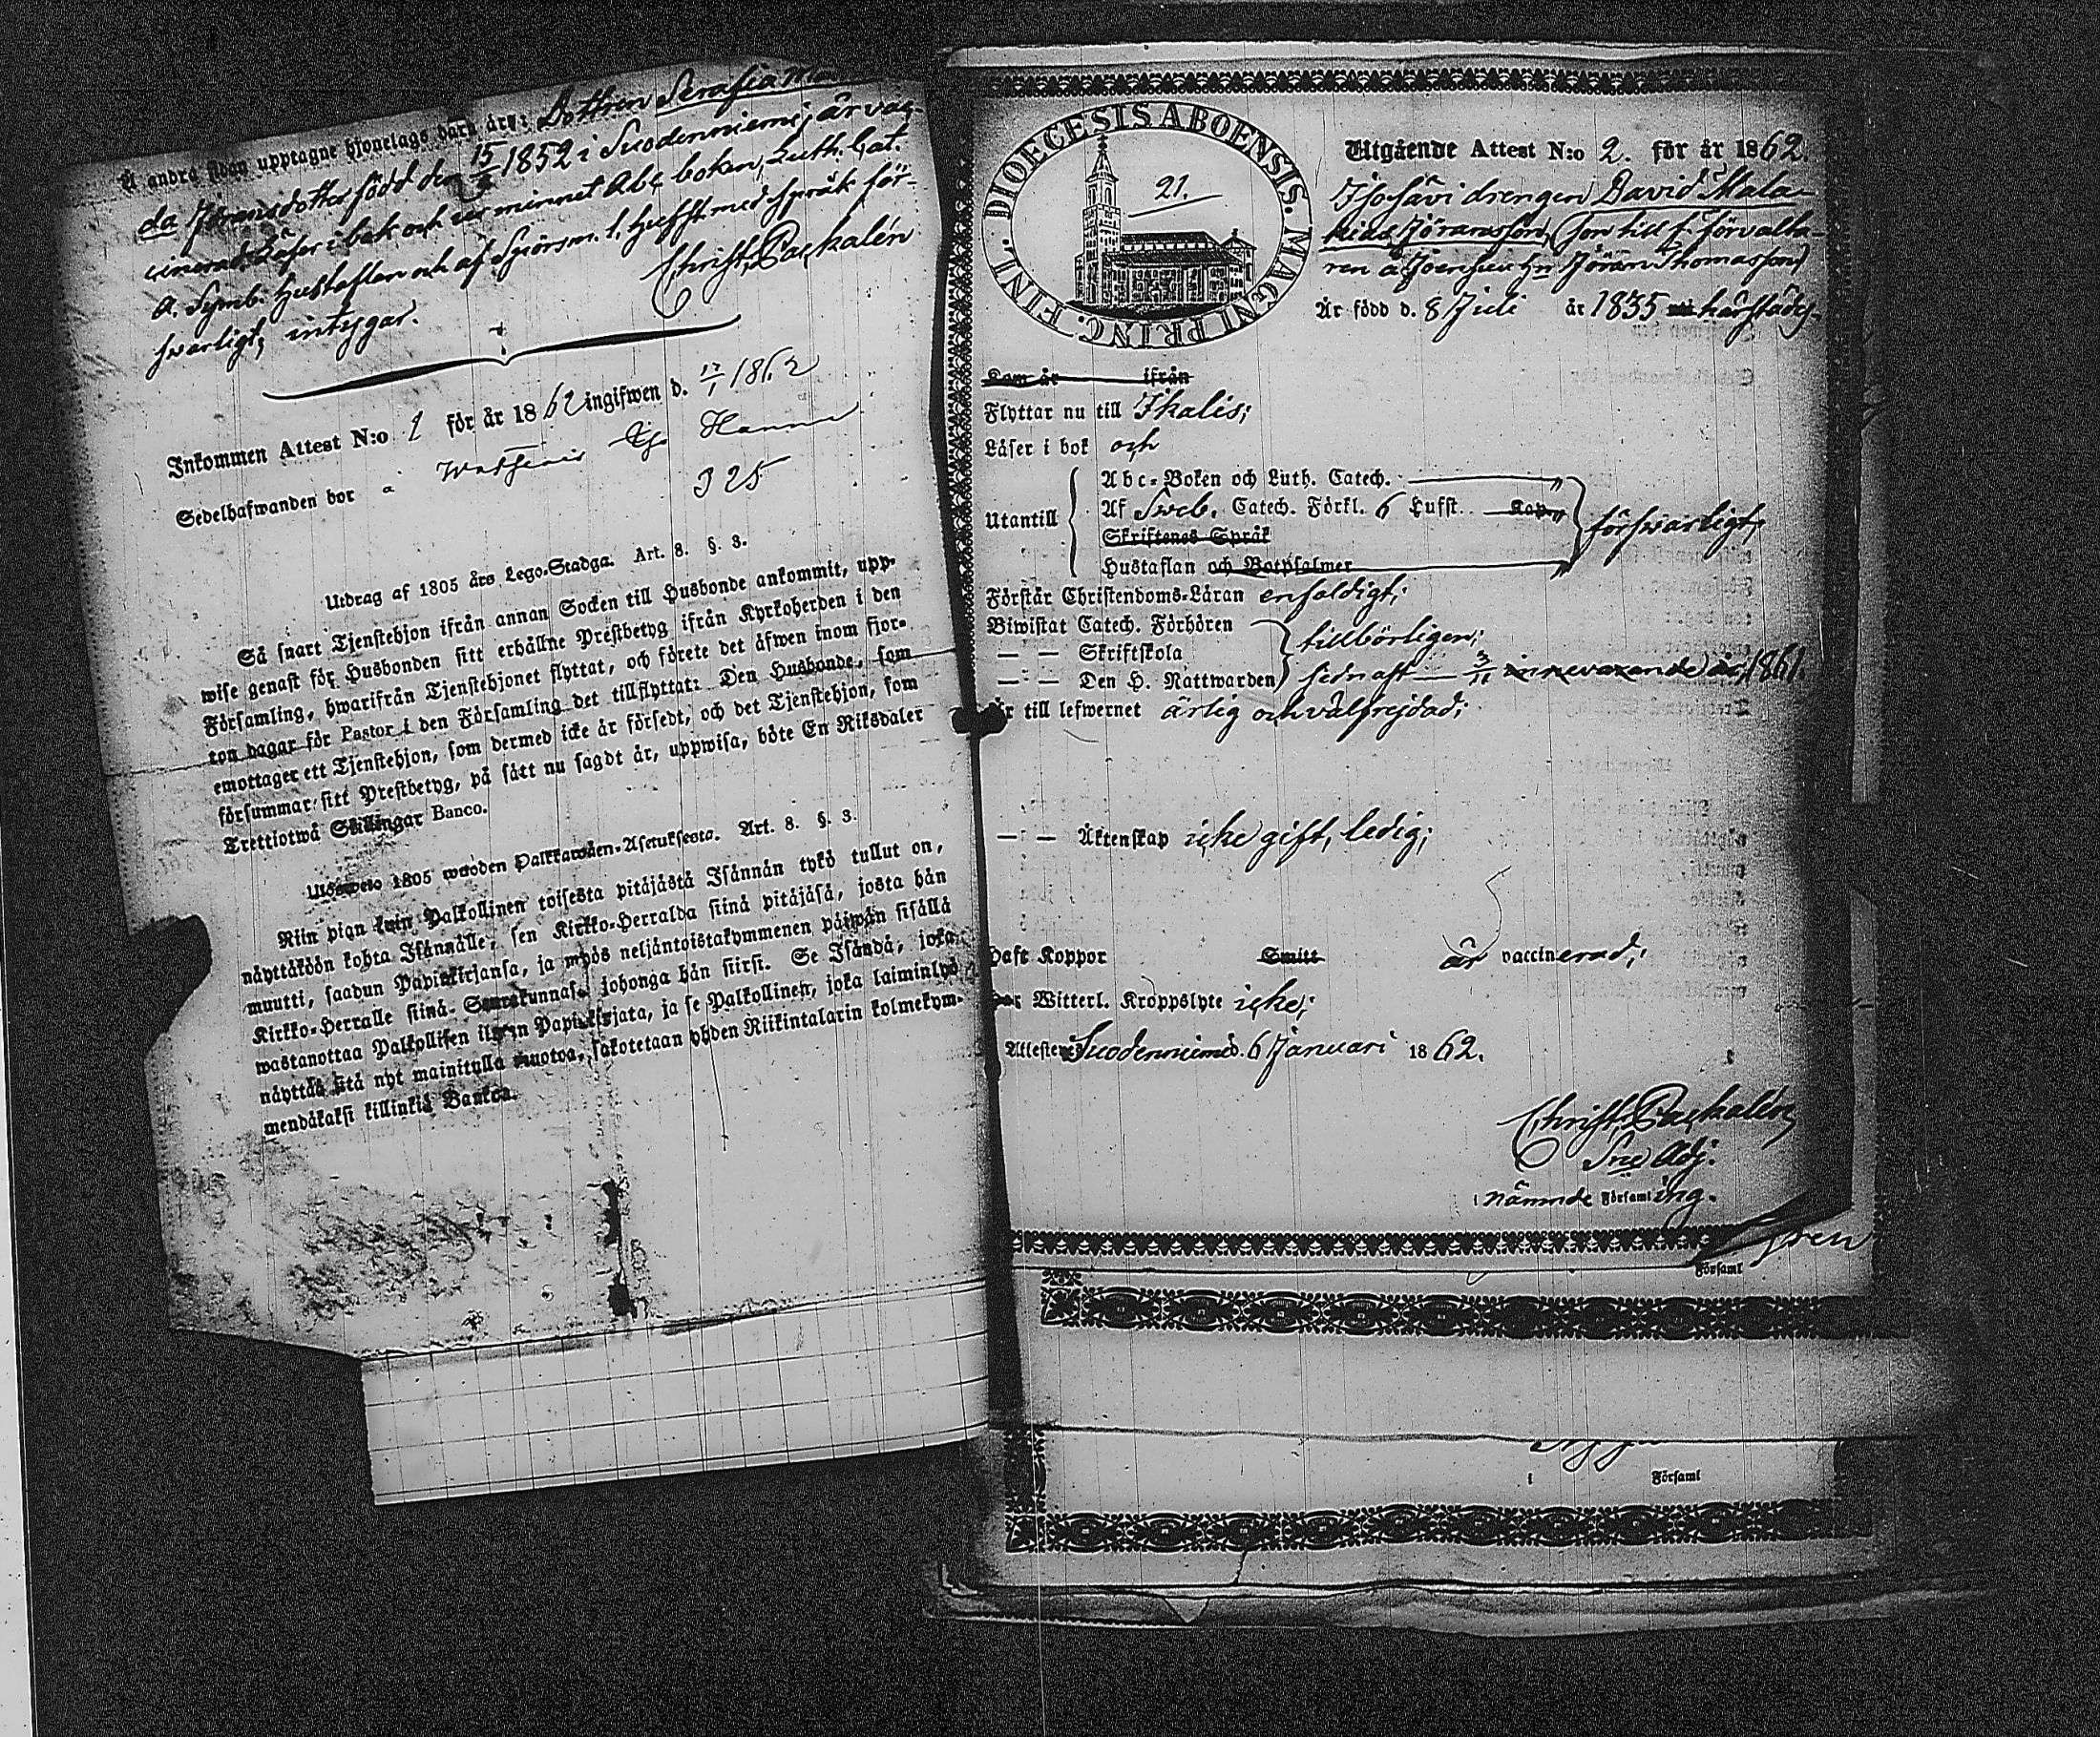 Å andra sidan upptagne hjonelags barn äro: Dottren Serafia
da Jöransdotter född den 15 1852 i Suodenniemi, är vac-
cinerad. Läser i bok och ur minnet Abc boken, Luth. Cat.
A. Symb: Hustaflan och af Spörsm. 1. Hufst. med språk för-
svarligt, intygar.
Christ. Packalén
Inkommen Attest N:o 1 för år 1862 ingifwen d. 17/1 1862
Sedelhafwanden bor å
325
Utdrag af 1805 års Lego-Stadga. Art. 8. §. 3.
Så snart Tjenstehjon ifrån annan Socken till Husbonde ankommit, upp-
wise genast för Husbonden sitt erhållne Prestbetyg ifrån Kyrkoherden i den
Församling, hwarifrån Tjenstehjonet flyttat, och förete det äfwen inom fjor-
ton dagar för Pastor i den Församling det tillflyttat: Den Husbonde, som
emottager ett Tjenstehjon, som dermed icke är försedt, och det Tjenstehjon, som
försummar sitt Prestbetyg, på sätt nu sagdt är, uppwisa, böte En Riksdaler
Trettiotwå Skillingar Banco.
Ulosweto 1805 wuoden Palkkawäen-Asetuksesta. Art. 8. §. 3.
Niin pian kuin Palkollinen toisesta pitäjästä Isännän tykö tullut on,
näyttäköön kohta Isännälle, sen Kirkko-Herralda siinä pitäjäsä, josta hän
muutti, saadun Papinkirjansa, ja myös neljäntoistakymmenen päiwän sisällä
Kirkko-Herralle siinä Seurakunnasa johonga hän siirsi. Se Isändä, joka
wastanottaa Palkollisen ilman Papinkirjata, ja se Palkollinen, joka laiminlyö
näyttää sitä nyt mainitulla muotoa, sakotetaan yhden Riikintalarin kolmekym-
mendäkaksi killinkiä Bankoa.
DIOECESIS ABOENSIS. MAGNI PRINC. FINL.
21.
Utgående Attest N:o 2. för år 1862.
Isosävi drengen David Mala-
kias Jöransson, (son till f. förvalta-
ren å Joensuu Hr Jöran Thomasson)
Är född d. 8 Juli år 1835 härstädes.
Kom år ifrån
Flyttar nu till Ikalis;
Läser i bok och
Abc-Boken och Luth. Catech.
Utantill Af Sveb. Catech. Förkl. 6 Hufst. Kap. försvarligt,
Skriftenes Språk
Hustaflan och Botpsalmer
Förstår Christendoms-Läran enfaldigt;
Biwistat Catech. Förhören
— — Skriftskola tillbörligen;
— — Den H. Nattwarden sednast 3/11 innevarande år, 1861.
Är till lefwernet ärlig och välfrejdad;
— — Äktenskap icke gift, ledig;
Haft Koppor Smitt är vaccinerad;
Har Witterl. Kroppslyte icke;
Attesterar Suodenniemi d. 6 Januari 1862.
Christ. Packalén
Sne Adj.
i nämnde Församling.
Församl
i Församl